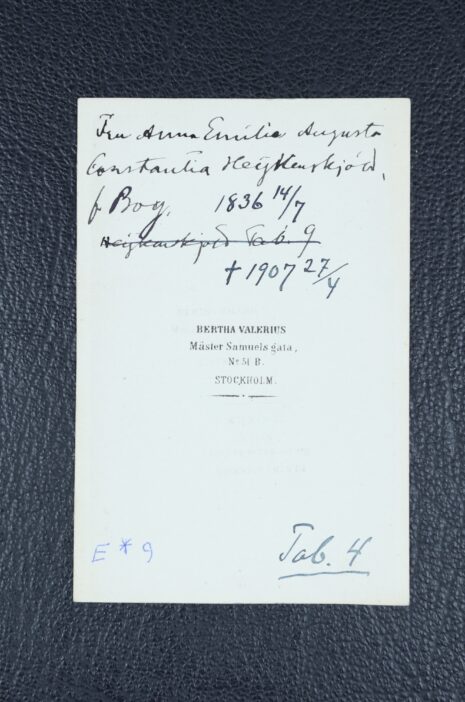 Fru Anna Emilia Augusta
Constantia Heijkenskjöld,
f Boy. 1836 14/7
Heijkenskjöld Tab. 9
† 1907 27/4
BERTHA VALERIUS
Mäster Samuels gata,
No 51 B.
STOCKHOLM.
E * 9
Tab. 4